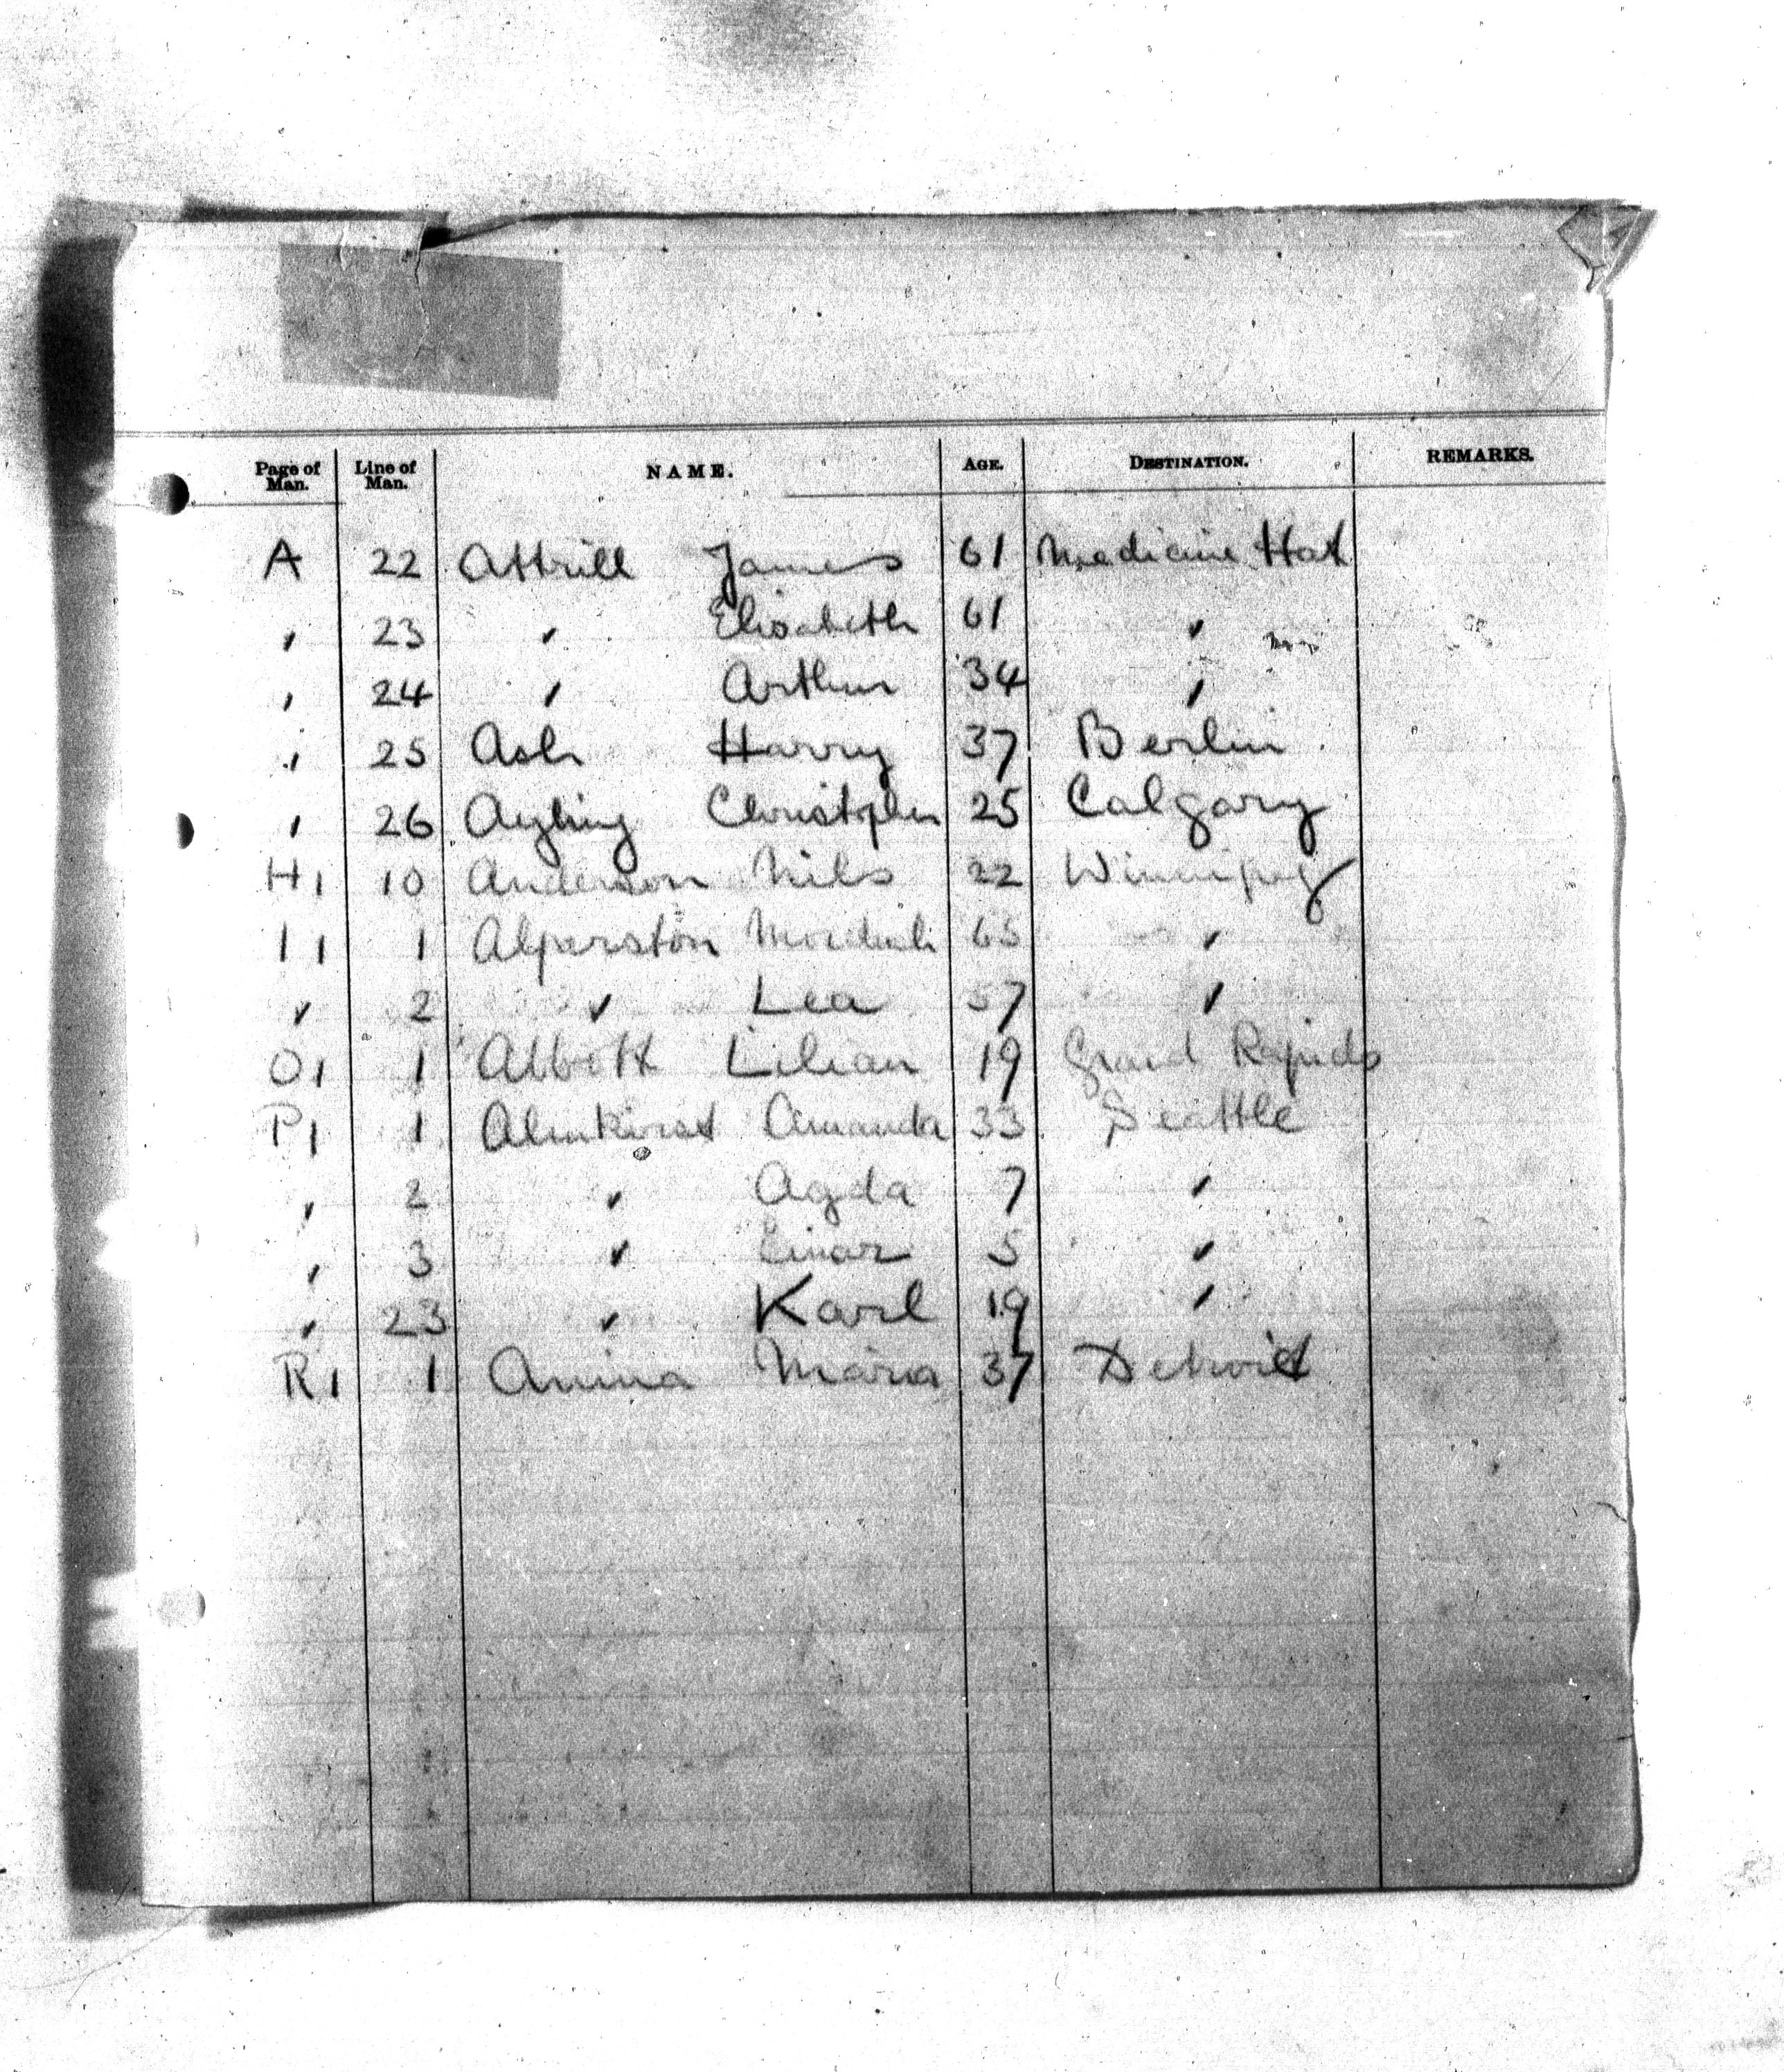 Page of Man. Line of Man. NAME. AGE. DESTINATION. REMARKS.
A 22 Attrill James 61 Medicine Hat
" 23 " Elisabeth 61 "
" 24 " Arthur 34 "
" 25 Ash Harry 37 Berlin
" 26 Ayling Christopher 25 Calgary
H1 10 Anderson Nils 22 Winnipeg
I1 1 Alperston 65 "
" 2 " Lea 57 "
O1 1 Abbott Lilian 19 Grand Rapids
P1 1 Amanda 33 Seattle
" 2 " Agda 7 "
" 3 " Einar 5 "
" 23 " Karl 19 "
R1 1 Maria 37 Detroit